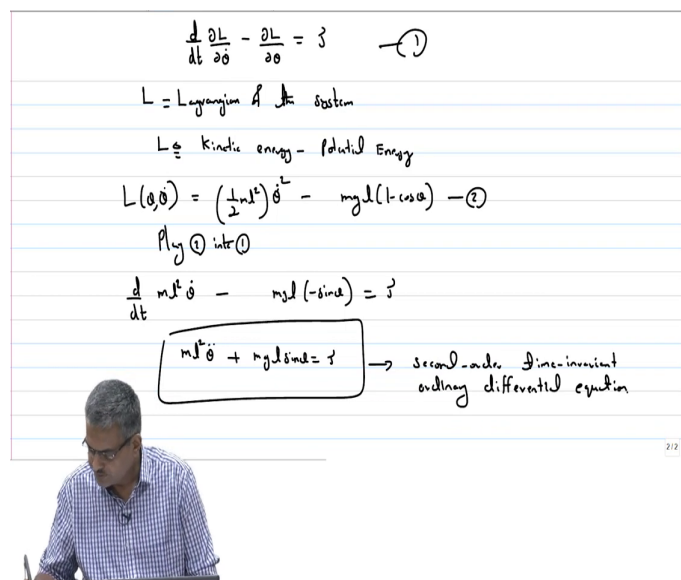 d/dt ∂L/∂θ̇ - ∂L/∂θ = ζ —①
L = Lagrangian of the system
L ≜ Kinetic energy - Potential Energy
L(θ,θ̇) = (1/2 ml²) θ̇² - mgl(1-cosθ) —②
Plug ② into ①
d/dt ml² θ̇ - mgl(-sinθ) = ζ
ml²θ̈ + mgl sinθ = ζ → second-order time-invariant
ordinary differential equation
2/2